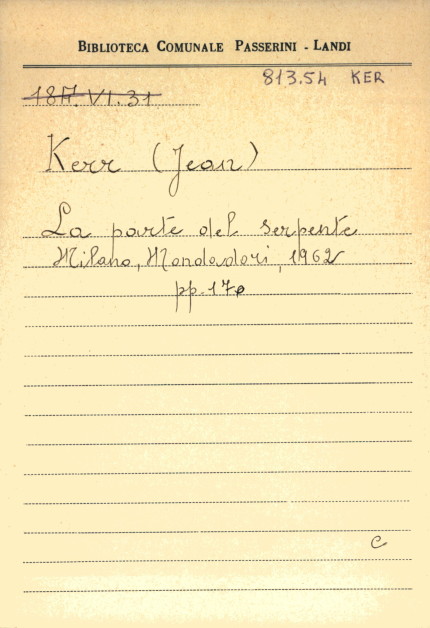 BIBLIOTECA COMUNALE PASSERINI - LANDI
813.54 KER
VI.31
Kerr (Jean)
La parte del serpente
Milano, Mondadori, 1962
pp. 170
C